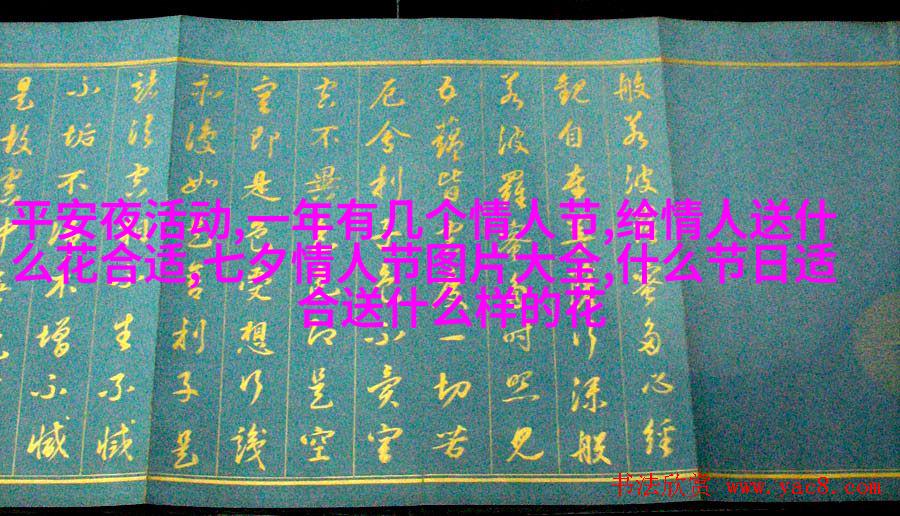 平安夜活动,一年有几个情人节,给情人送什
么花合适,七夕情人节图片大全,什么节日适
合送什么样的花
般若波蜜多心経
觀自在行深般
若波羅多時照見
五蘊皆一切苦
厄舍利色不異空
空不異即是空
空即是色受想行識
亦復如是舍利子是
諸法空相不生不滅
不垢不不增不減
是故空中
书法欣赏 www.yac8.com